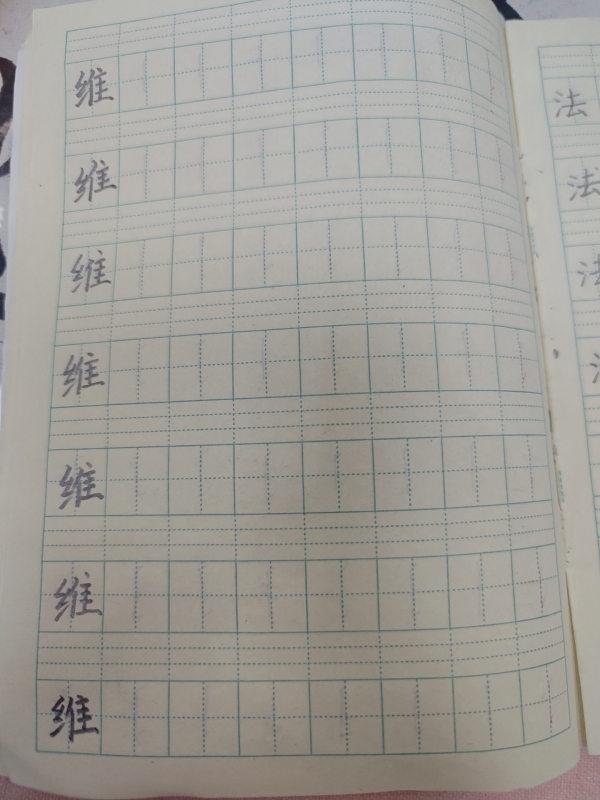 维
维
维
维
维
维
维
法
法
法